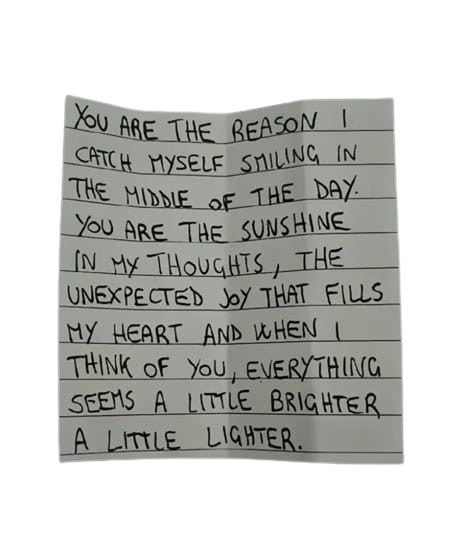 YOU ARE THE REASON I
CATCH MYSELF SMILING IN
THE MIDDLE OF THE DAY.
YOU ARE THE SUNSHINE
IN MY THOUGHTS, THE
UNEXPECTED JOY THAT FILLS
MY HEART AND WHEN I
THINK OF YOU, EVERYTHING
SEEMS A LITTLE BRIGHTER
A LITTLE LIGHTER.